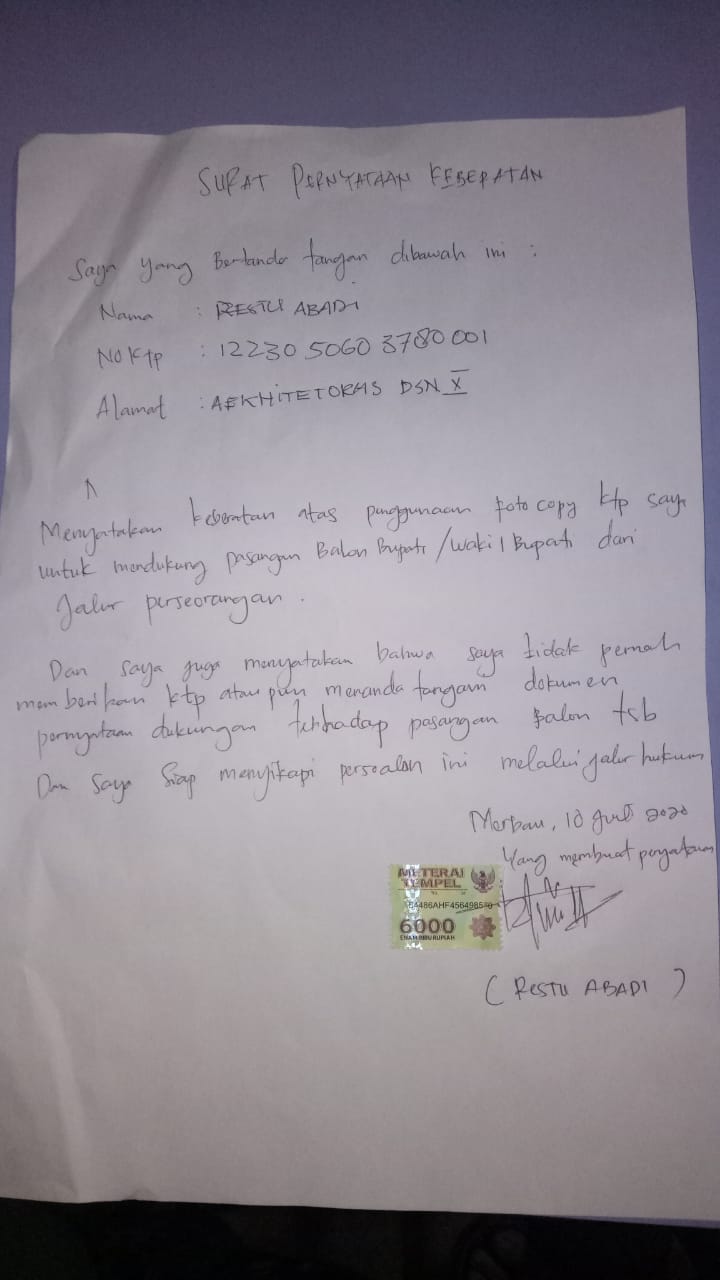 SURAT PERNYATAAN KEBERATAN
Saya yang Bertanda tangan dibawah ini :
Nama : RESTU ABADI
No Ktp : 12230 5060 3780 001
Alamat : AEKHITETORAS DSN X
Menyatakan keberatan atas penggunaan foto copy ktp saya
untuk mendukung pasangan Balon Bupati /wakil Bupati dari
Jalur perseorangan .
Dan saya juga menyatakan bahwa saya tidak pernah
memberikan ktp ataupun menanda tangani dokumen
pernyataan dukungan terhadap pasangan Balon tsb
Dan saya siap menyikapi persoalan ini melalui jalur hukum
Merbau, 10 Juli 2020
Yang membuat penyataan
METERAI
TEMPEL
6000
ENAM RIBU RUPIAH
( RESTU ABADI )